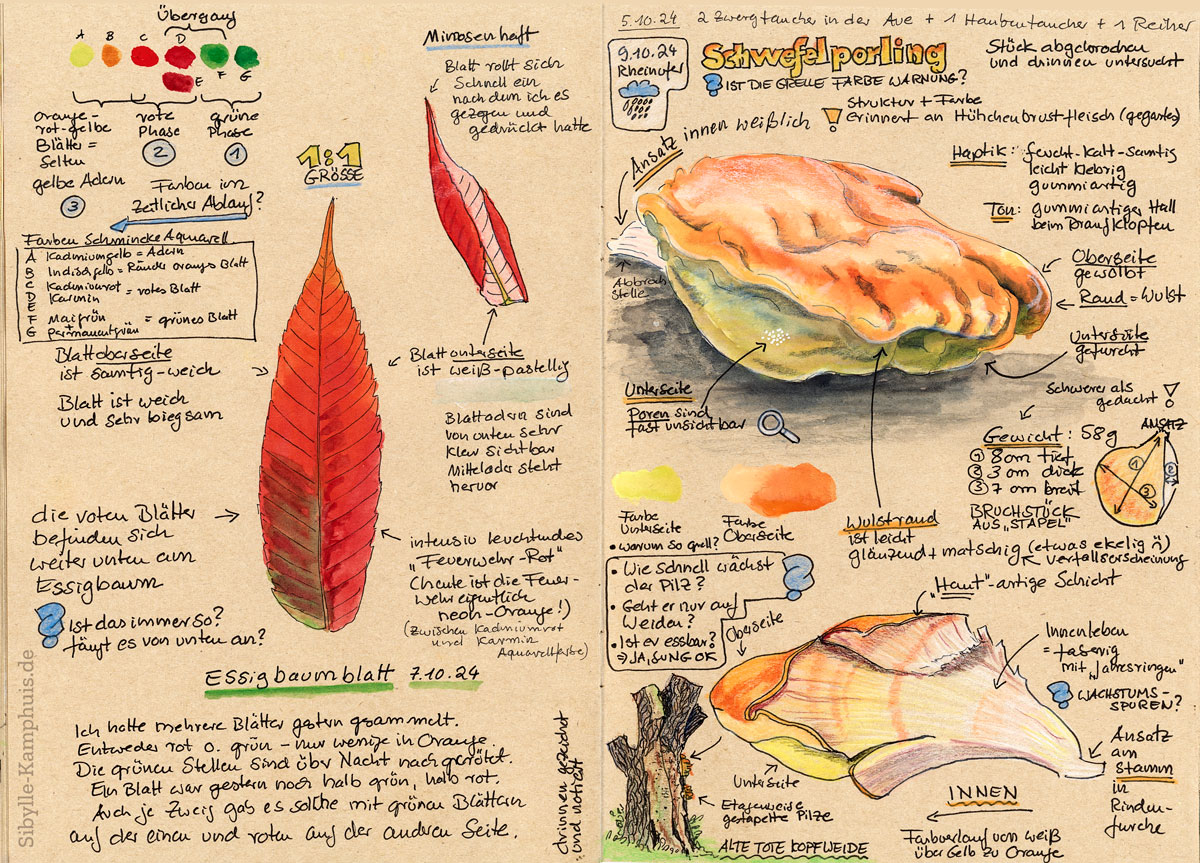 Übergang
A B C D E F G
orange-
rot-gelbe
Blätter =
Selten
gelbe Adern
3
rote
Phase
2
grüne
Phase
1
Farben im
zeitlicher Ablauf?
Farben Schmincke Aquarell
A Kadmiumgelb = Adern
B Indischgelb = Ränder oranges Blatt
C Kadmiumrot
D Karmin = rotes Blatt
E
F Maigrün
+ = grünes Blatt
G Permanentgrün
1:1
GRÖSSE
Mimosenhaft
Blatt rollt sich
Schnell ein
nach dem ich es
gezogen und
gedrückt hatte
Blattoberseite
ist samtig-weich
Blatt ist weich
und sehr biegsam
Blattunterseite
ist weiß-pastellig
Blattadern sind
von unten sehr
klar sichtbar
Mittelader steht
hervor
die roten Blätter
befinden sich
weiter unten am
Essigbaum
Ist das immer so?
fängt es von unten an?
intensiv leuchtendes
"Feuerwehr-Rot"
(heute ist die Feuer-
wehr eigentlich
neon-Orange!)
(zwischen Kadmiumrot
und Karmin
Aquarellfarbe)
Essigbaumblatt 7.10.24
Ich hatte mehrere Blätter gestern gesammelt.
Entweder rot o. grün – nur wenige in Orange.
Die grünen Stellen sind über Nacht nachgerötet.
Ein Blatt war gestern noch halb grün, halb rot.
Auch je Zweig gab es solche mit grünen Blättern
auf der einen und roten auf der anderen Seite.
drinnen gezeichnet
und notiert
Sibylle-Kamphuis.de
5.10.24 2 Zwergtaucher in der Ave + 1 Haubentaucher + 1 Reiher
9.10.24
Rheinufer
Schwefelporling
IST DIE GRELLE FARBE WARNUNG?
Stück abgebrochen
und drinnen untersucht
Struktur + Farbe
erinnert an Hühchenbrustfleisch (gegartes)
Ansatz innen weißlich
Haptik: feucht-kalt-samtig
leicht klebrig
gummiartig
Ton: gummiartiger Hall
beim Draufklopfen
Abbruch
Stelle
Oberseite
gewölbt
Rand = Wulst
Unterseite
gefurcht
Unterseite
Poren sind
fast unsichtbar
Schwerer als
gedacht!
Gewicht: 58g
① 8 cm tief
② 3 cm dick
③ 7 cm breit
BRUCHSTÜCK
AUS "STAPEL"
ANSATZ
1
2
3
Farbe
Unterseite
Farbe
Oberseite
Wulstrand
ist leicht
glänzend + matschig (etwas ekelig ü)
Verfallserscheinung
• warum so grell?
• Wie schnell wächst
der Pilz?
• Geht er nur auf
Weiden?
• Ist er essbar?
⇒ JA, JUNG OK
"Haut"-artige Schicht
Oberseite
Innenleben
= faserig
mit "Jahresringen"
WACHSTUMS-
SPUREN?
Ansatz
am
Stamm
in
Rinden-
furche
Unterseite
Etagenweise
gestapelte Pilze
INNEN
ALTE TOTE KOPFWEIDE
Farbverlauf von weiß
über Gelb zu Orange